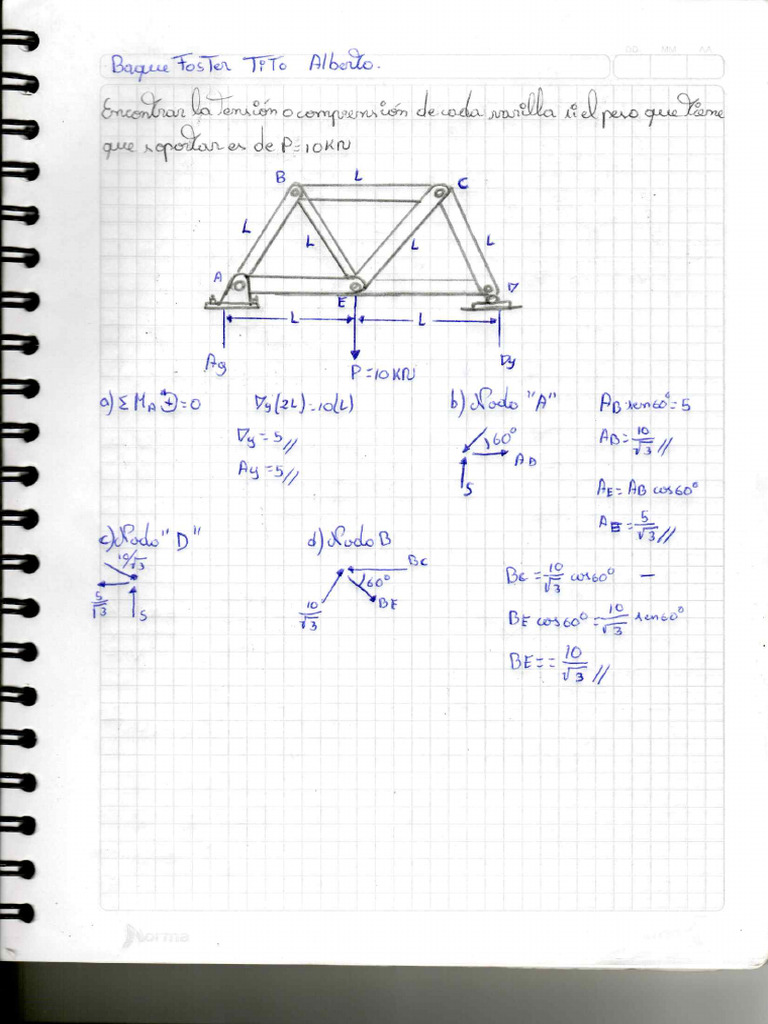 DD MM AA
Baque Foster Tito Alberto.
Encontrar la tensión o comprensión de cada varilla si el peso que tiene
que soportar es de P=10KN
B L C
L L L L
A E D
L L
Ay Dy
P=10KN
a) ΣM_A ↺+ =0 Dy(2L)=10(L)
Dy=5//
Ay=5//
b) Nodo "A"
60°
AB
5
AB sen60°=5
AB=10/√3//
AE=AB cos60°
AE=5/√3//
c) Nodo "D"
10/√3
5/√3
5
d) Nodo B
BC
60°
BE
10/√3
BC=10/√3 cos60° —
BE cos60°=10/√3 sen60°
BE==10/√3//
Norma